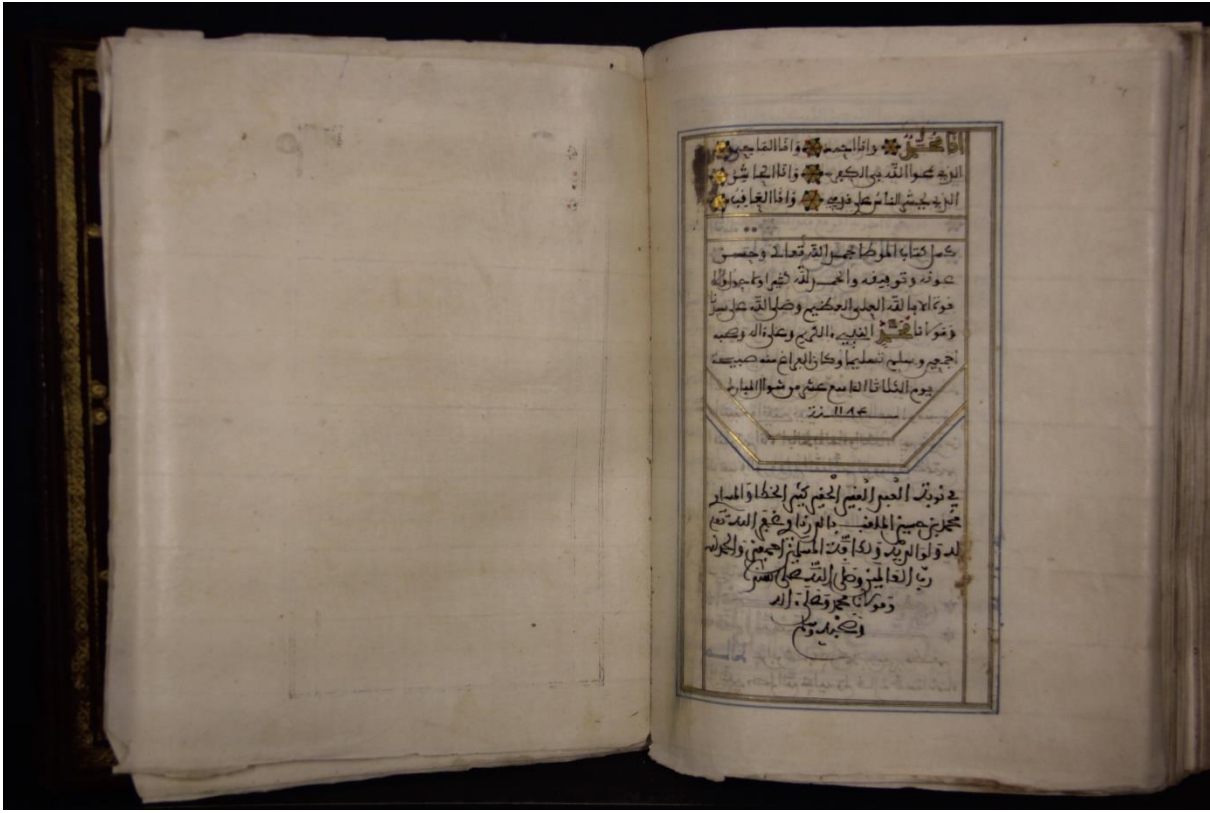 انا محمد وانا احمد وانا الماحي
الذي يمحوا الله بي الكفر وانا الحاشر
الذي يحشر الناس على قدمي وانا العاقب
كمل كتاب الموطا بحمد الله تعالى وحسن
عونه وتوفيقه والحمد لله كثيرا ولا حول ولا
قوة الا بالله العلي العظيم وصلى الله على سيدنا
ومولانا محمد النبيء الكريم وعلى ءاله وصحبه
اجمعين وسلم تسليما وكان الفراغ منه صبيحة
يوم الثلاثا التاسع عشر من شوال المبارك
١١٨٤
العبد الفقير الحقير كثير الخطا والمساوي
محمد بن حسين الملقب
له ولوالديه ولكافة المسلمين اجمعين والحمد لله
رب العالمين وصلى الله على سيدنا
ومولانا محمد وعلى ءاله
وصحبه وسلم